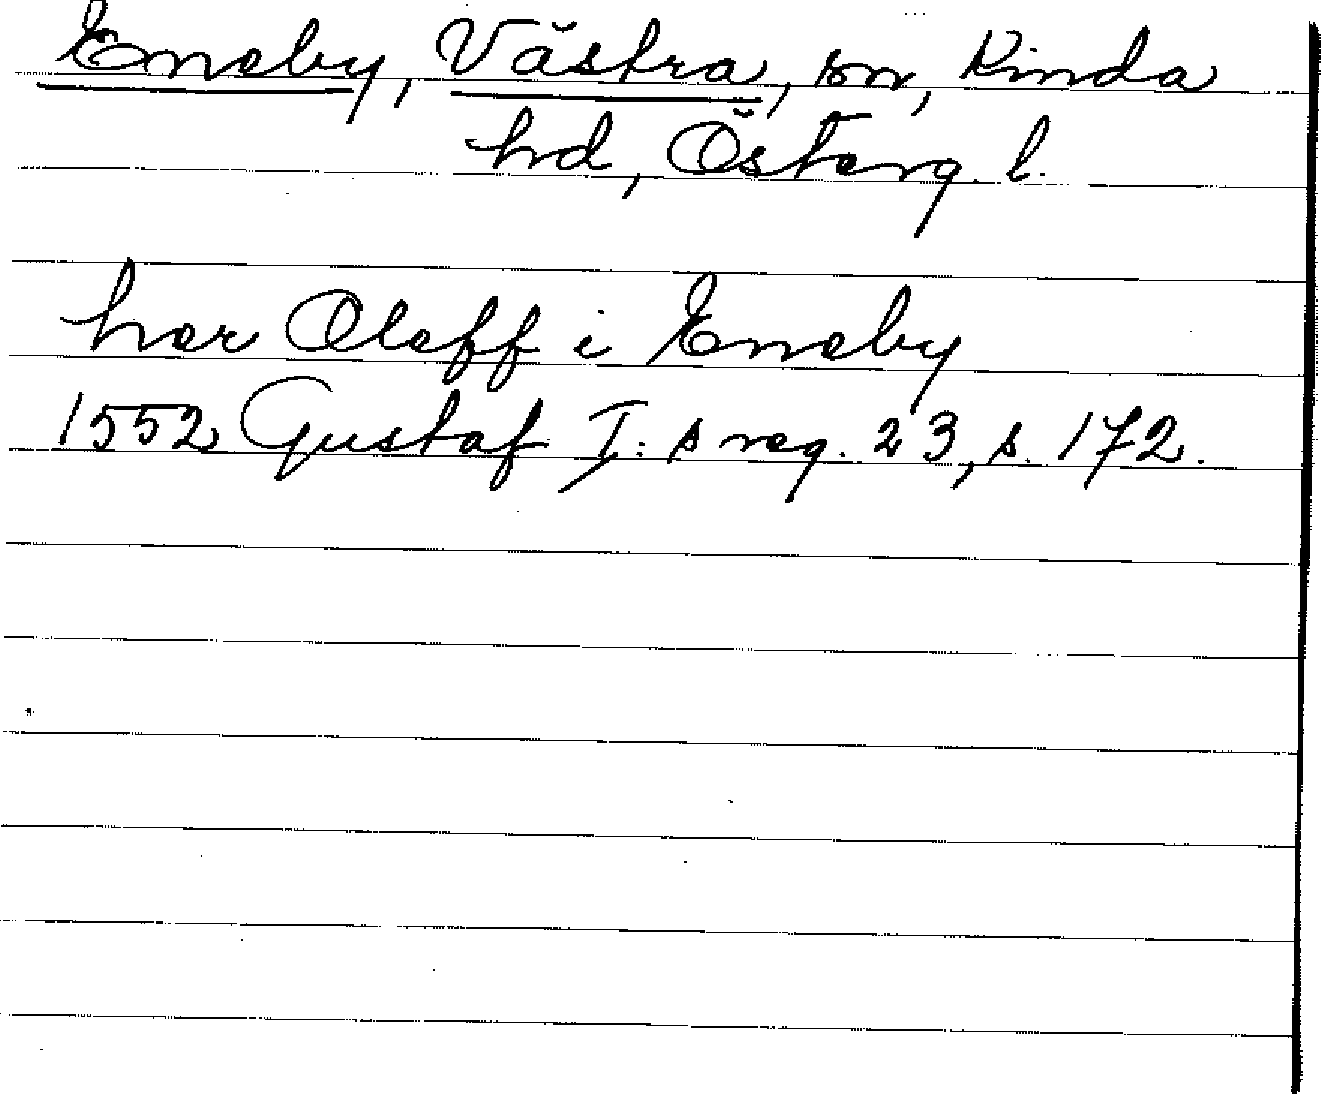 Eneby, Västra, sn, Kinda
hd, Österg. l.
her Oleff i Eneby
1552 Gustaf I: s reg. 23, s. 172.